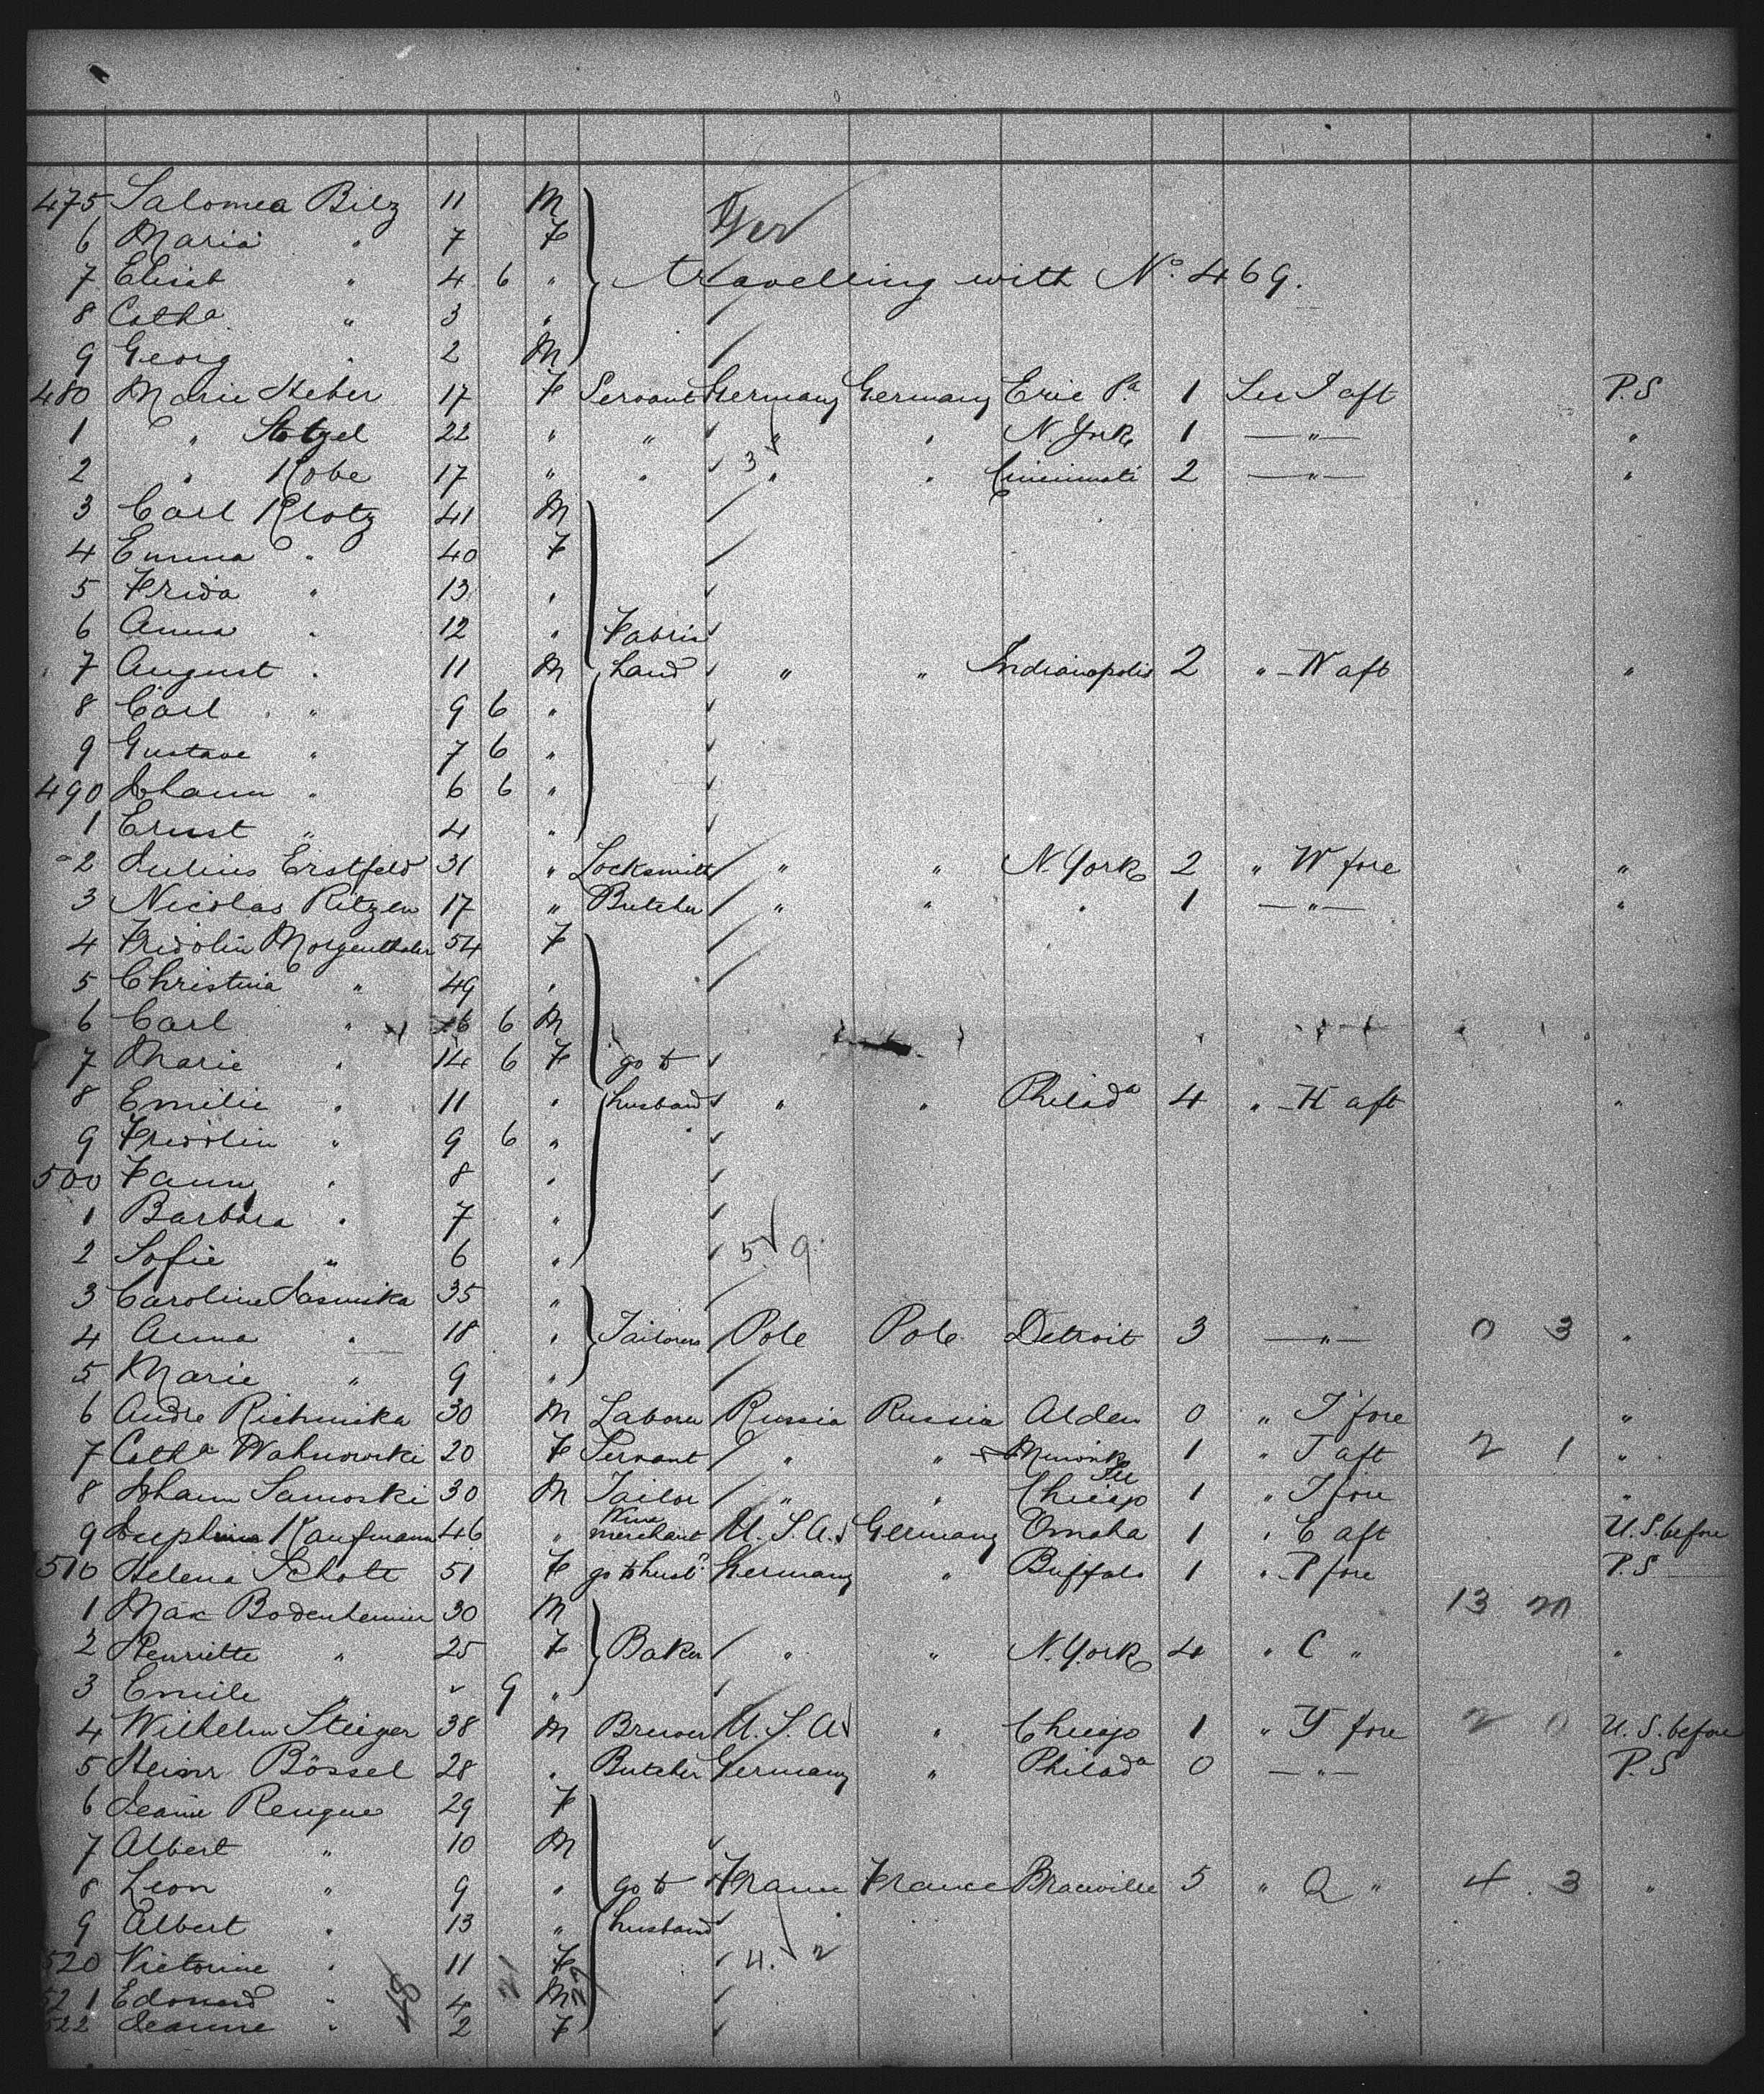 475 Salomea Bilz 11 M Ger
6 Maria " 7 F
7 Elisab " 4 6 " travelling with No. 469.
8 Catha " 3 "
9 Georg " 2 M
480 Marie Heber 17 F Servant Germany Germany Erie Pa 1 J aft P.S
1 " Stotzel 22 " " " " N. York 1 — " — "
2 " Kobe 17 " " 3 " " Cincinnati 2 — " — "
3 Carl Klotz 41 M
4 Emma " 40 F
5 Frida " 13 "
6 Anna " 12 " Fabric
7 August " 11 M hand " " Indianapolis 2 " N aft "
8 Carl " 9 6 "
9 Gustave " 7 6 "
490 Johann " 6 6 "
1 Ernst " 4 "
2 Julius Erstfeld 31 " Locksmith " " N. York 2 " W fore "
3 Nicolas Ritzen 17 " Butcher " " " 1 — " — "
4 Fridolin Morgenthaler 54 F
5 Christina " 49 "
6 Carl " 16 6 M
7 Marie " 14 6 F go to
8 Emilie " 11 " husband " " Philada 4 " H aft "
9 Fridolin " 9 6 "
500 Fanny " 8 "
1 Barbara " 7 "
2 Sofie " 6 " 5 9
3 Caroline 35 "
4 Anna " 18 " Pole Pole Detroit 3 — " — 0 3 "
5 Marie " 9 "
6 Andre Richniska 30 M Laborer Russia Russia Alden 0 " J fore "
7 Catha 20 F Servant " " 1 " J aft 2 1 "
8 Johann Samoski 30 M Tailor " " Chicago Ill 1 " J fore "
9 Kaufmann 46 " Wine merchant U.S.A. Germany Omaha 1 " E aft U.S. before
510 Helena Schott 51 F go to husbd Germany " Buffalo 1 " P fore P.S
1 Max Bodenheimer 30 M 13 20
2 Henriette " 25 F Baker " " N. York 4 " C " "
3 Emile " " 9 "
4 Wilhelm Steiger 38 M Brewer U.S.A. " Chicago 1 " Y fore 2 0 U.S. before
5 Heinr Bössel 28 " Butcher Germany " Philada 0 — " — P.S
6 Jeanne Rengue 29 F
7 Albert " 10 M
8 Leon " 9 " go to France France 5 " Q " 4 3 "
9 Albert " 13 " husband
520 Victorine " 11 F 4. 2
521 Edouard " 4 M
522 Jeanne " 2 F
48 21 27